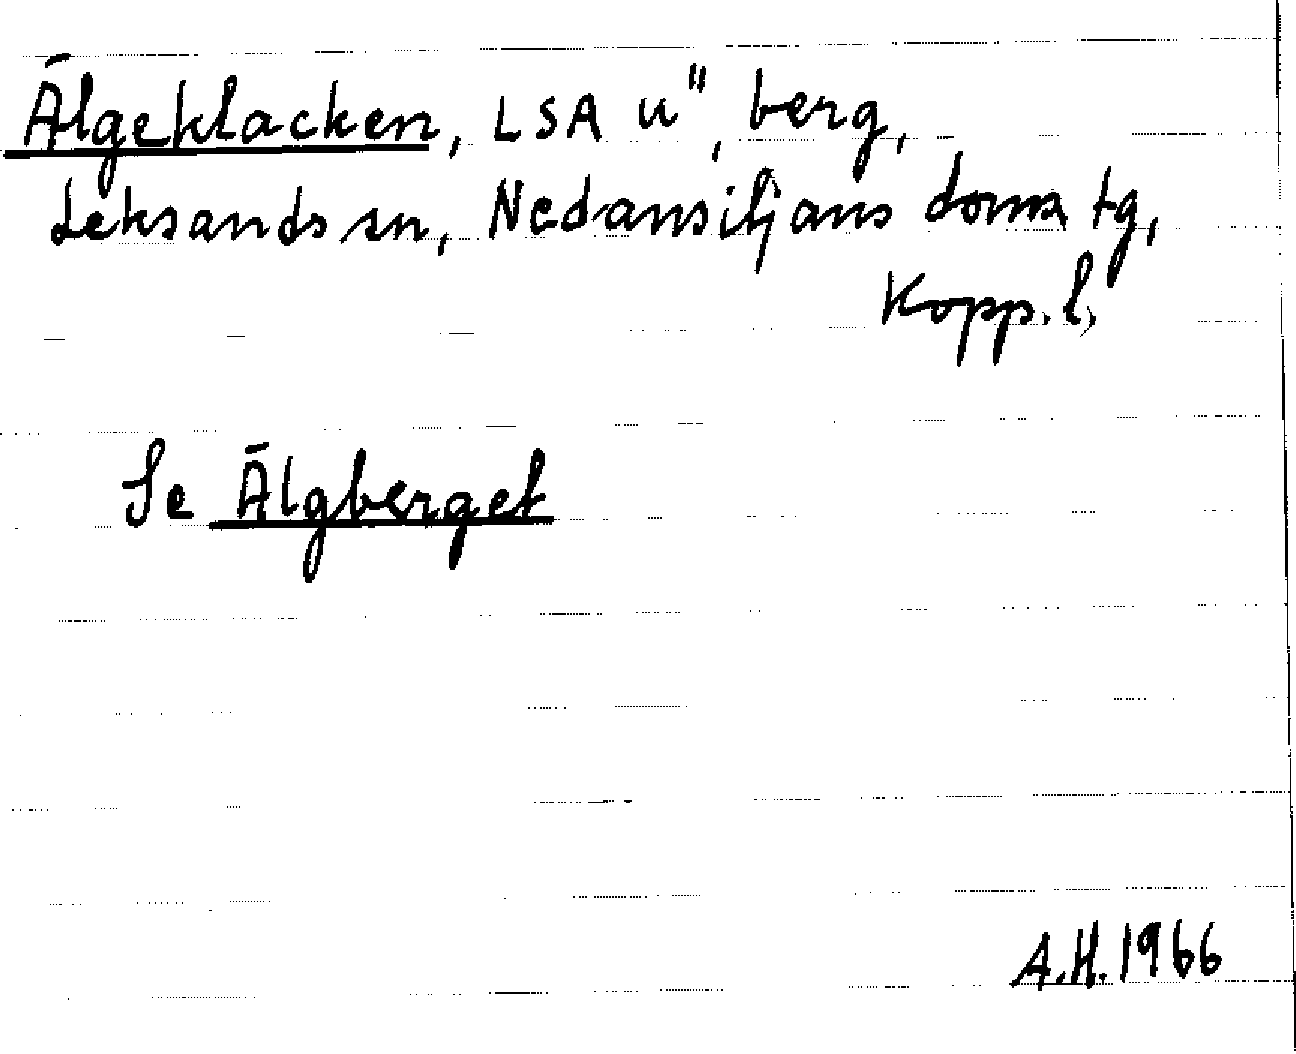 Älgeklacken, LSA u", berg,
Leksands sn, Nedansiljans doms. tg,
Kopp. l,
Se Älgberget
A.H. 1966